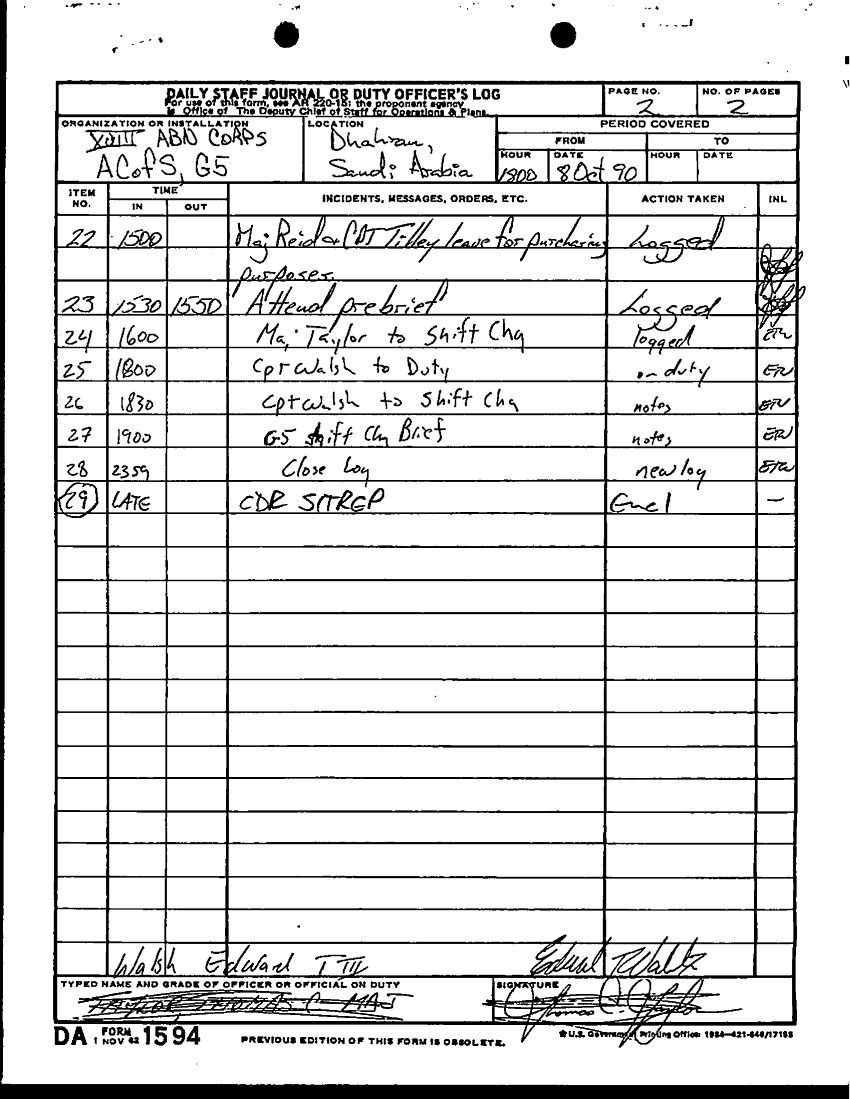 DAILY STAFF JOURNAL OR DUTY OFFICER'S LOG
For use of this form, see AR 220-15; the proponent agency
is Office of The Deputy Chief of Staff for Operations & Plans.
PAGE NO.
2
NO. OF PAGES
2
ORGANIZATION OR INSTALLATION
XVIII ABN CORPS
ACofS, G5
LOCATION
Dhahran,
Saudi Arabia
PERIOD COVERED
FROM
TO
HOUR DATE HOUR DATE
8 Oct 90
ITEM NO.
TIME
IN OUT
INCIDENTS, MESSAGES, ORDERS, ETC.
ACTION TAKEN
INL
22 1500 Maj Reid & CPT Tilley leave for purchasing Logged
purposes.
23 1530 1550 Attend prebrief Logged
24 1600 Maj Taylor to Shift Chg logged ETW
25 1800 Cpt Walsh to Duty on duty ETW
26 1830 Cpt Walsh to Shift Chg notes ETW
27 1900 G5 Shift Chg Brief notes ETW
28 2359 Close Log new log ETW
29 LATE CDR SITREP Encl —
Walsh Edward T III
TYPED NAME AND GRADE OF OFFICER OR OFFICIAL ON DUTY
TAYLOR, THOMAS C. MAJ
SIGNATURE
DA FORM 1594
1 NOV 62
PREVIOUS EDITION OF THIS FORM IS OBSOLETE.
☆ U.S. Government Printing Office: 1984—421-646/17155